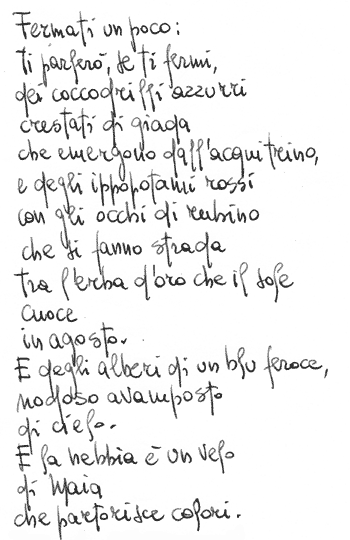 Fermati un poco:
ti parlerò, se ti fermi,
dei coccodrilli azzurri
crestati di giada
che emergono dall'acquitrino,
e degli ippopotami rossi
con gli occhi di rubino
che si fanno strada
tra l'erba d'oro che il sole
cuoce
in agosto.
E degli alberi di un blu feroce,
nodoso avamposto
di cielo.
E la nebbia è un velo
di Maia
che partorisce colori.